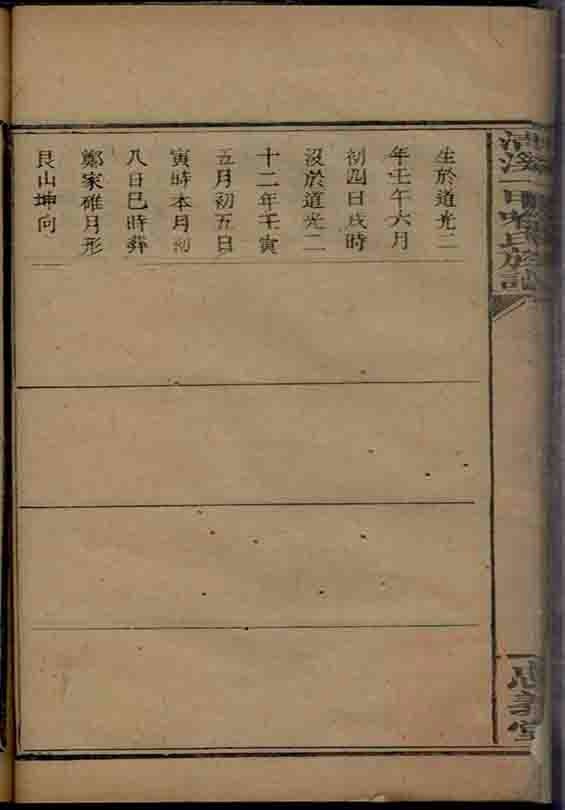 生於道光二
年壬午六月
初四日戌時
沒於道光二
十二年壬寅
五月初五日
寅時本月初
八日巳時葬
鄭家碓月形
艮山坤向
溪一氏族譜
忠義堂